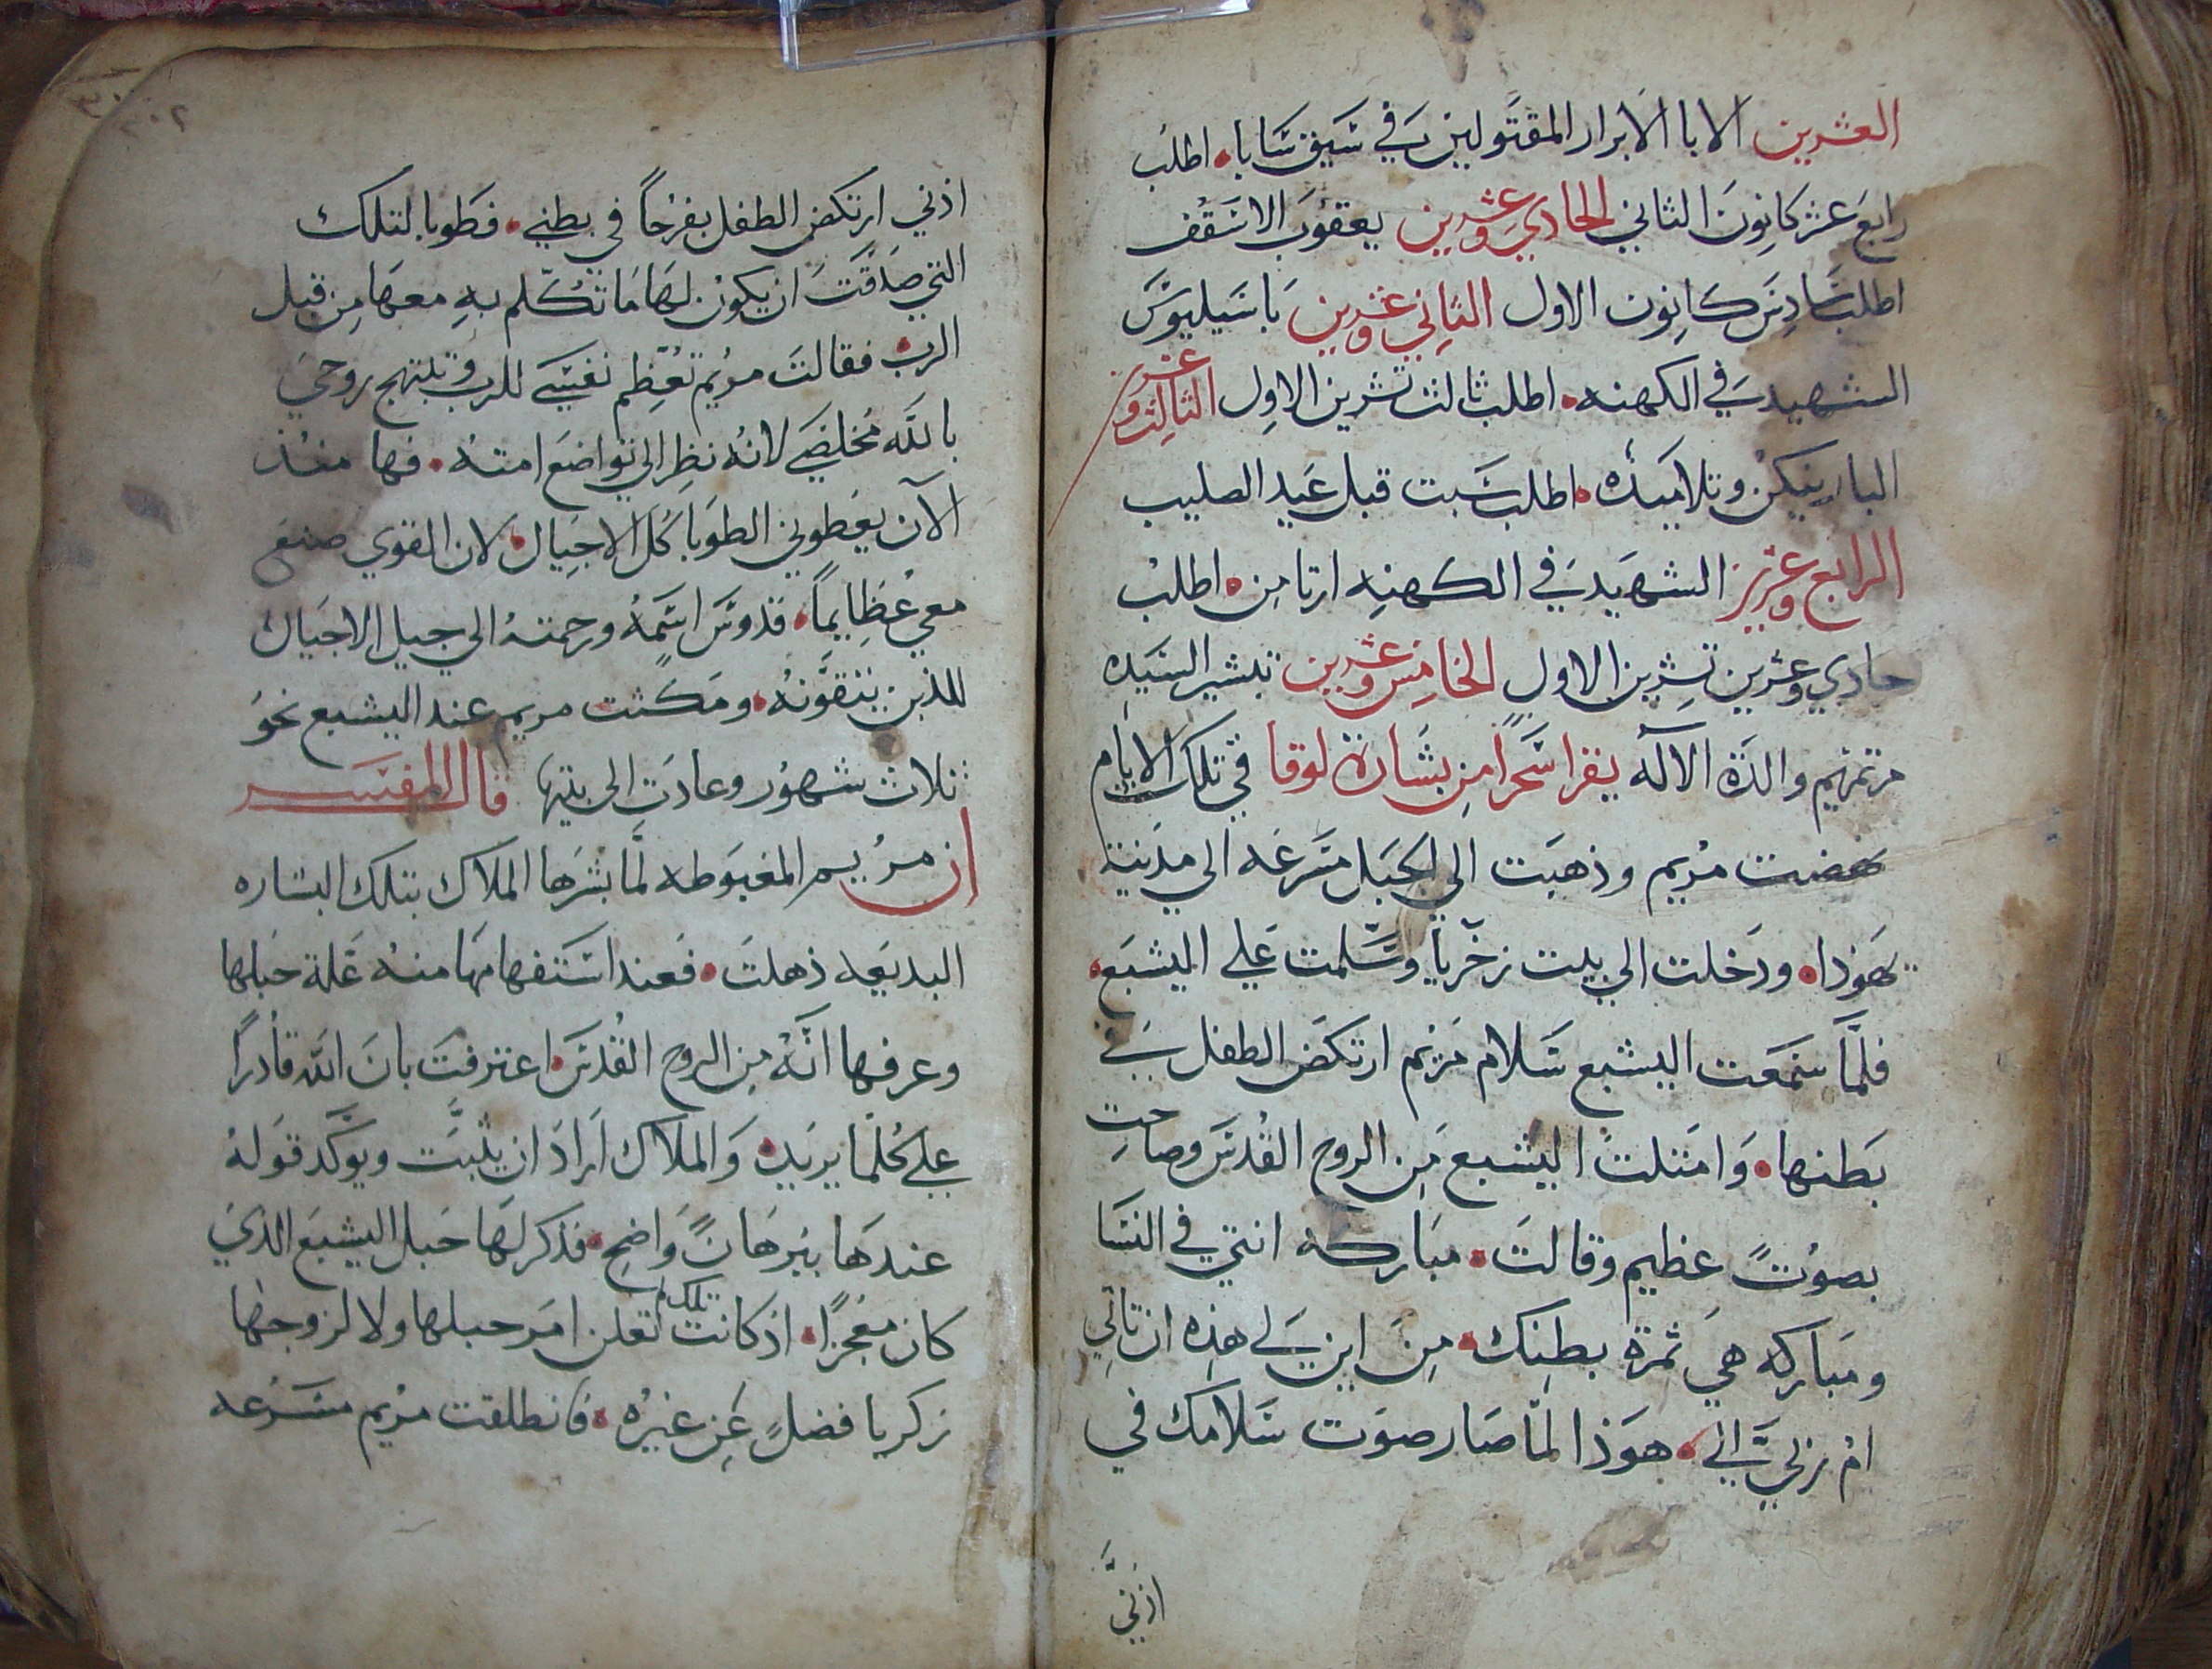 العشرين الابا الابرار المقتولين في سيق سابا. اطلب
رابع عشر كانون الثاني الحادي وعشرين يعقوب الاسقف
اطلب سادس كانون الاول الثاني وعشرين باسيليوس
الشهيد في الكهنه. اطلب ثالث تشرين الاول الثالث وعشر
البار نيكن وتلاميذه. اطلب سبت قبل عيد الصليب
الرابع وعشرين الشهيد في الكهنه ارتامن. اطلب
حادي وعشرين تشرين الاول الخامس وعشرين تبشير السيده
مرتمريم والدة الاله يقرا سحرًا من بشارة لوقا في تلك الايام
نهضت مريم وذهبت الى الجبل مسرعه الى مدينة
يهوذا. ودخلت الى بيت زخريا وسلمت علي اليشبع.
فلما سمعت اليشبع سلام مريم ارتكض الطفل في
بطنها. وامتلت اليشبع من الروح القدس وصاحت
بصوتً عظيم وقالت. مباركه انتي في النسا
ومباركه هي ثمرة بطنك. من اين لي هذه ان تاتي
ام ربي الي. هوذا لما صار صوت سلامك في
اذني
٢٠٣
اذني ارتكض الطفل بفرحًا في بطني. فطوبا لتلك
التي صدقت ان يكون لها ما تكلم به معها من قبل
الرب. فقالت مريم تعظم نفسي للرب وتبتهج روحي
بالله مخلصي لانه نظر الي تواضع امته. فها منذ
الآن يعطوني الطوبا كل الاجيال. لان القوي صنع
معي عظايمًا. قدوس اسمه ورحمته الي جيل الاجيال
للذين يتقونه. ومكثت مريم عند اليشبع نحو
ثلاث شهور وعادت الى بيتها قال المفسر
ان مريم المغبوطه لما بشرها الملاك بتلك البشاره
البديعه ذهلت. فعند استفهامها منه علة حبلها
وعرفها انه من الروح القدس. اعترفت بان الله قادرًا
علي كلما يريد. والملاك اراد ان يثبت ويوكد قوله
عندها ببرهانً واضح. فذكر لها حبل اليشبع الذي
كان معجزًا. اذ كانت تلك لم تعلن امر حبلها ولا لزوجها
زكريا فضلٍ عن غيره. فانطلقت مريم مسرعه